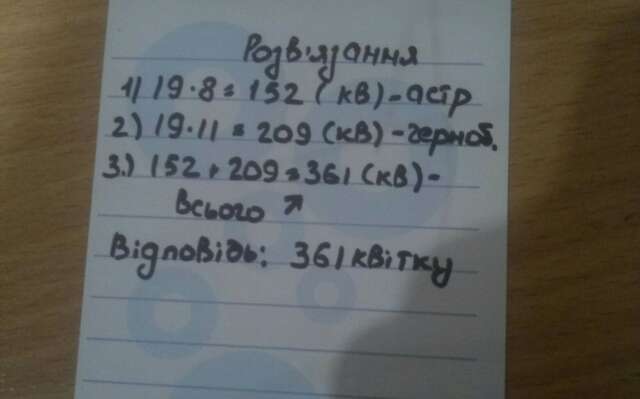 Розв'язання
1) 19·8=152 (кв)-астр
2) 19·11=209 (кв)-черноб.
3.) 152+209=361 (кв)-
всього ↗
Відповідь: 361 квітку